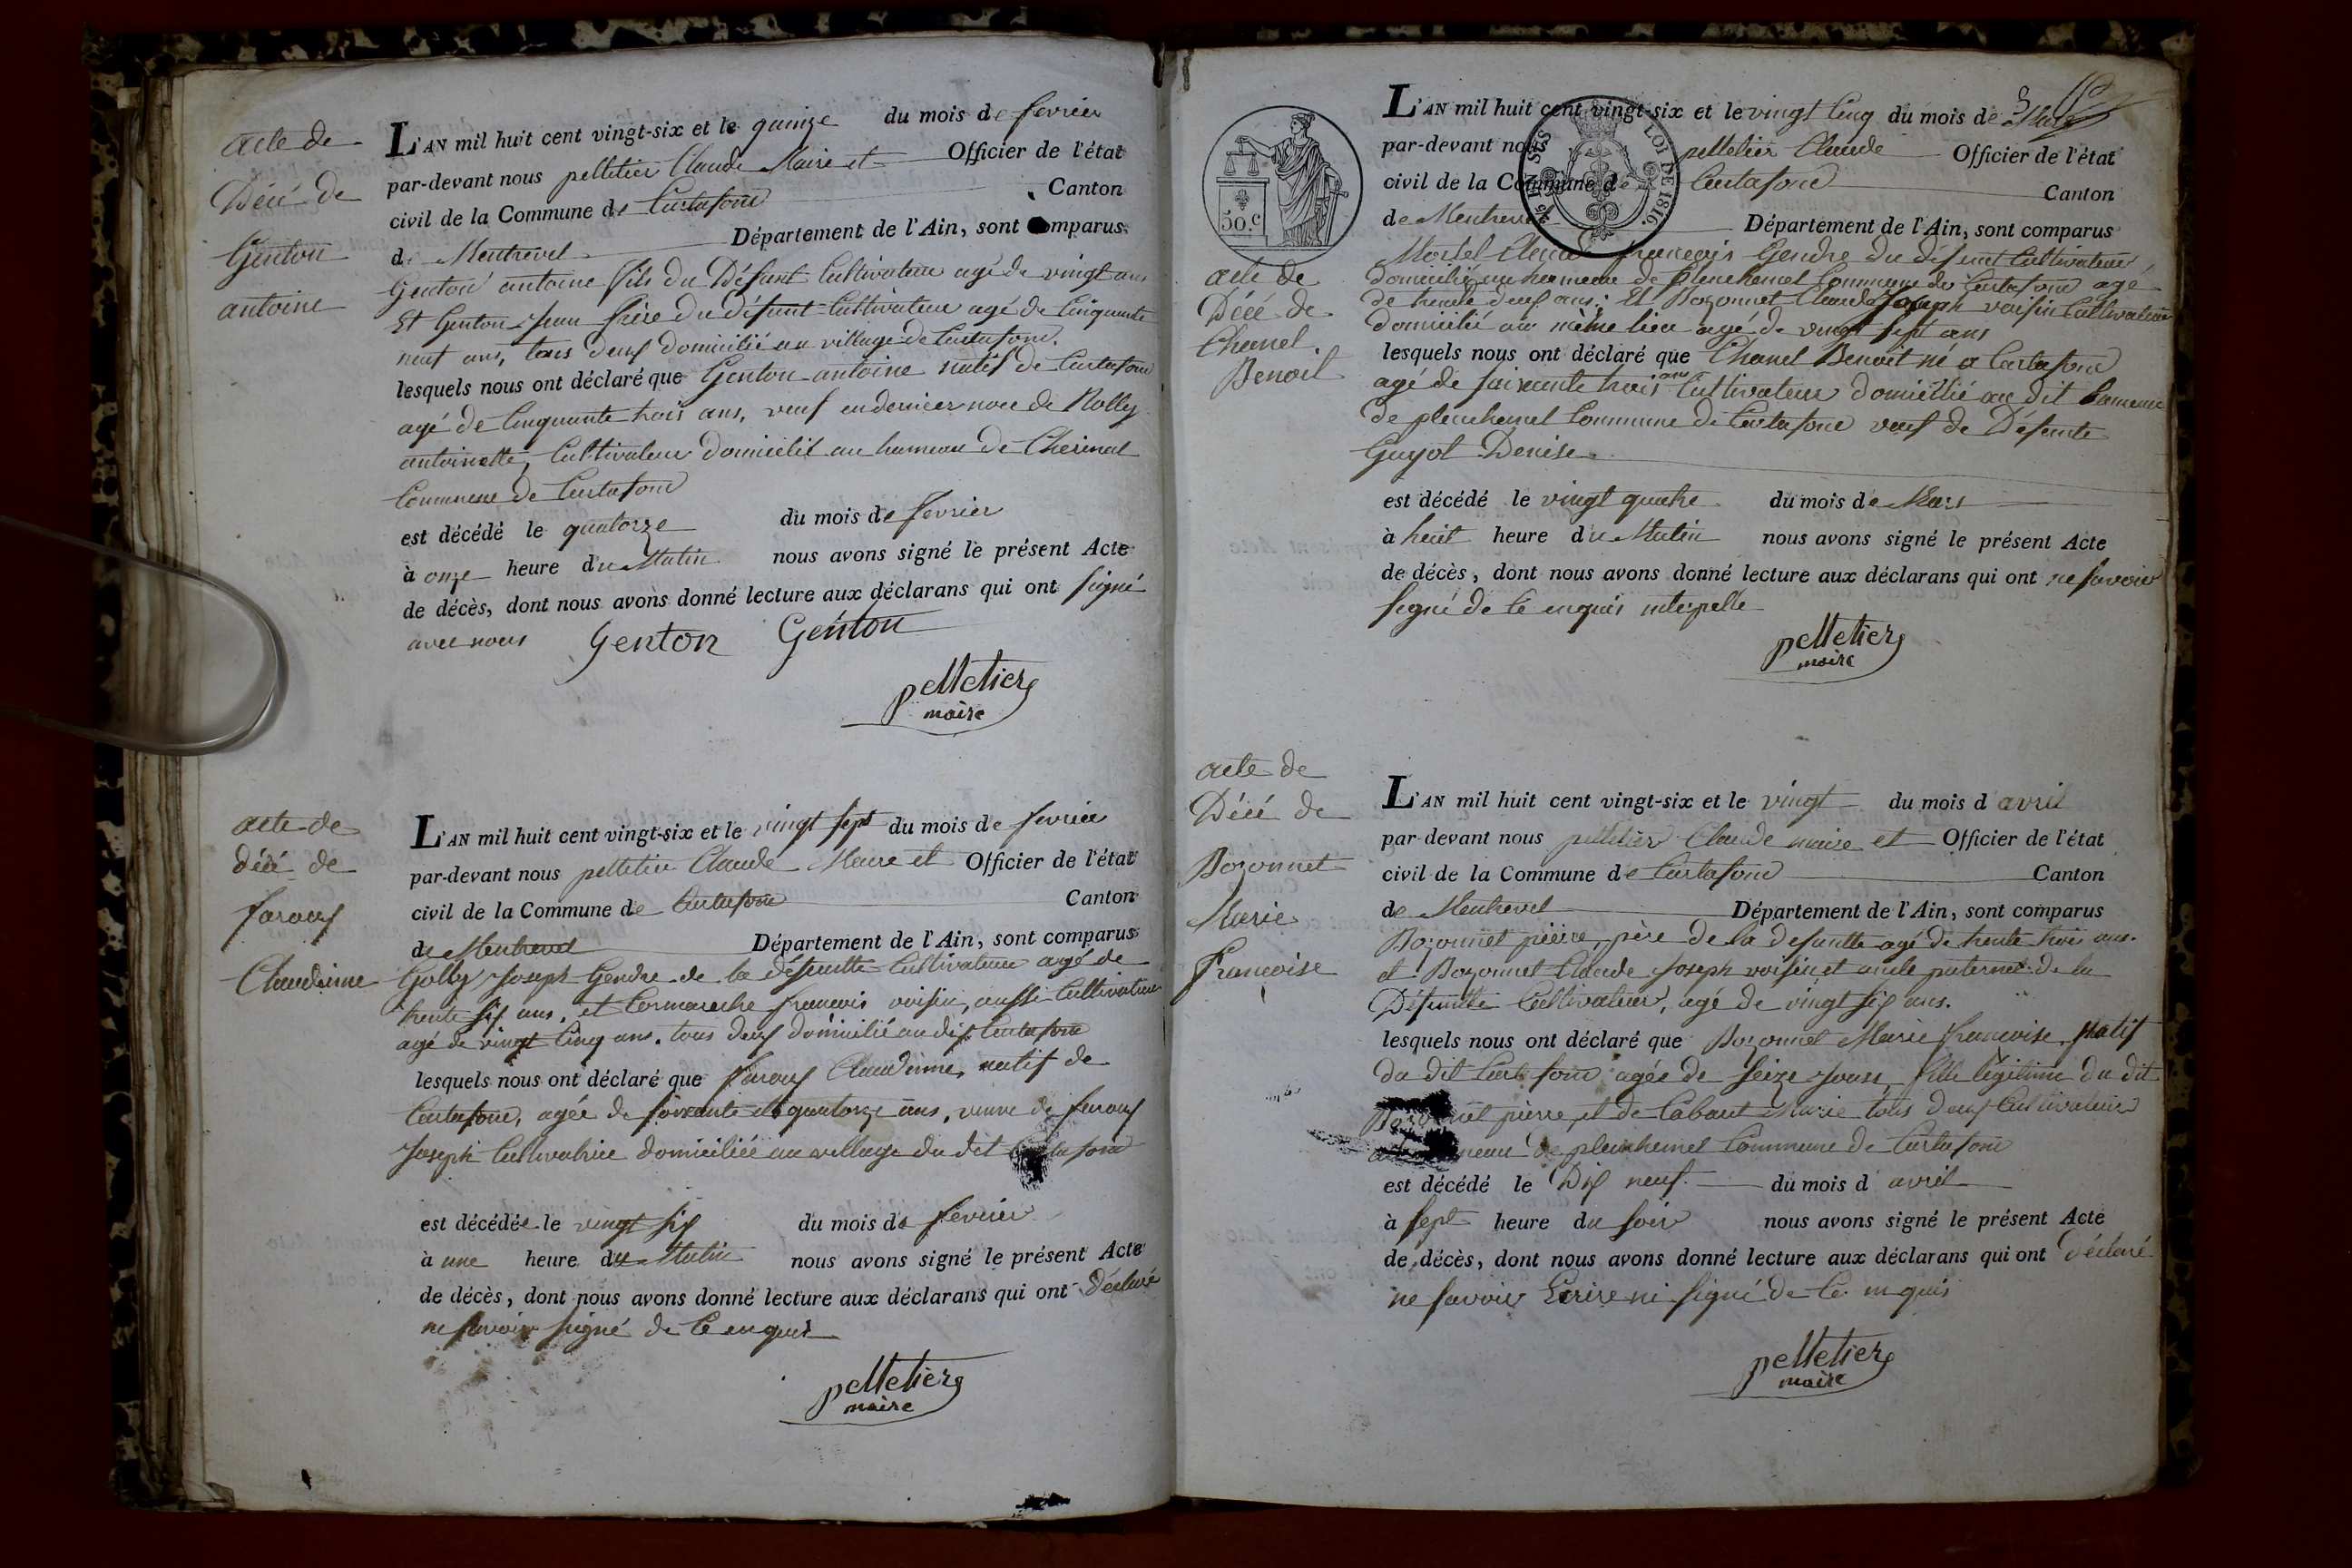 acte de
Décé de
Genton
antoine
L'AN mil huit cent vingt-six et le quinze du mois de fevrier
par-devant nous pelletier Claude Maire et Officier de l'état
civil de la Commune de Curtafond Canton
de Montrevel Département de l'Ain, sont comparus
Genton antoine fils du Défunt Cultivateur agé de vingt ans
Et Genton Jean frère du défunt Cultivateur agé de Cinquante
neuf ans, tous deux domicilié au village de Curtafond.
lesquels nous ont déclaré que Genton antoine natif de Curtafond
agé de Cinquante trois ans, veuf en dernier noce de Rolley
antoinette, Cultivateur domicilié au hameau de
Commune de Curtafond
est décédé le quatorze du mois de fevrier
à onze heure du Matin nous avons signé le présent Acte
de décès, dont nous avons donné lecture aux déclarans qui ont signé
avec nous Genton Genton
pelletier
maire
acte de
décé de
faroux
Claudinne
L'AN mil huit cent vingt-six et le vingt sept du mois de fevrier
par-devant nous pelletier Claude Maire et Officier de l'état
civil de la Commune de Curtafond Canton
de Montrevel Département de l'Ain, sont comparus
Golley Joseph Gendre de la défuntte Cultivateur agé de
trente six ans, et Cormareche francois voisin, aussi Cultivateur
agé de vingt Cinq ans. tous deux domicilié au dit Curtafond
lesquels nous ont déclaré que faroux Claudinne, natif de
Curtafond, agée de soixante et quatorze ans, veuve de feroux
Joseph Cultivatrice domiciliée au village du dit Curtafond
est décédée le vingt six du mois de février
à une heure du Matin nous avons signé le présent Acte
de décès, dont nous avons donné lecture aux déclarans qui ont Déclaré
ne savoir signé de Ce enquis
pelletier
maire
50.C
LOI DE 1816.
acte de
Décé de
Chanel
Benoit
L'AN mil huit cent vingt-six et le vingt Cinq du mois de Mars
par-devant nous pelletier Claude Officier de l'état
civil de la Commune de Curtafond Canton
de Montrevel Département de l'Ain, sont comparus
Mortel Claude francois Gendre du défunt Cultivateur
domicilié au hameau de plenchemel Commune de Curtafond agé
de trente deux ans; Et Bozonnet Claude Joseph voisin Cultivateur
domicilié au même lieu agé de vingt sept ans
lesquels nous ont déclaré que Chanel Benoit né a Curtafond
agé de soixante trois ans Cultivateur domicillié au dit hameau
de plenchemel Commune de Curtafond veuf de Défunte
Guyot Denise
est décédé le vingt quatre du mois de Mars
à huit heure du Matin nous avons signé le présent Acte
de décès, dont nous avons donné lecture aux déclarans qui ont ne savoir
signé de Ce enquis interpellé
pelletier
maire
acte de
Décé de
Bozonnet
Marie
francoise
L'AN mil huit cent vingt-six et le vingt du mois d avril
par-devant nous pelletier Claude maire et Officier de l'état
civil de la Commune de Curtafond Canton
de Montrevel Département de l'Ain, sont comparus
Bozonnet pierre, père de la defuntte agé de trente trois ans.
et Bozonnet Claude Joseph voisin et oncle paternel de la
Défuntte Cultivateur, agé de vingt six ans.
lesquels nous ont déclaré que Bozonnet Marie francoise, Natif
du dit Curtafond agée de seize Jours, fille légitime du dit
Bozonnet pierre et de Cabaut Marie tous deux Cultivateurs
au hameau de plenchemel Commune de Curtafond
est décédé le Dix neuf du mois d avril
à sept heure du soir nous avons signé le présent Acte
de décès, dont nous avons donné lecture aux déclarans qui ont Déclaré
ne savoir Ecrire ni signé de Ce enquis
pelletier
maire